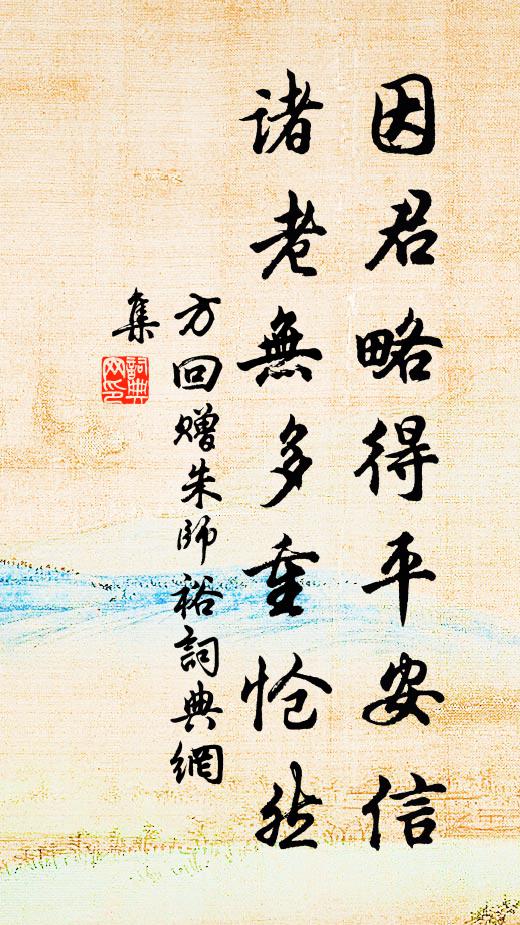 因君略得平安信
諸老無多重怆然
方回贈朱師裕詞典網
集
詞典網印